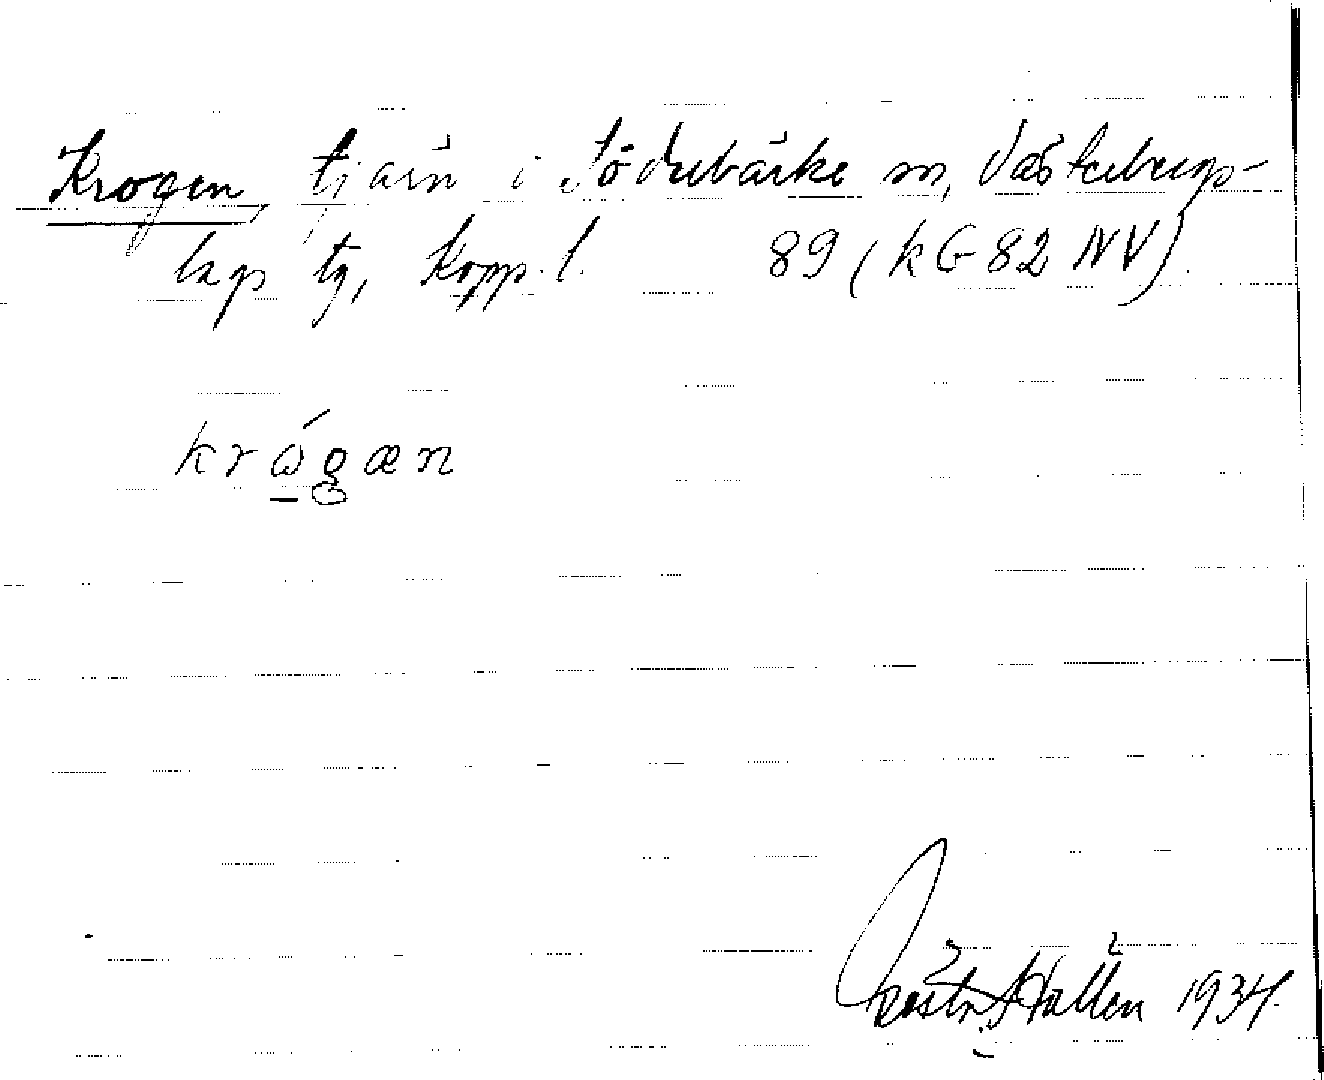 Krogen, tjärn i Söderbärke sn, Västerbergs-
lags tg, Kopp. l. 89 (kG 82 NV).
krógæn
Hallén 1934.